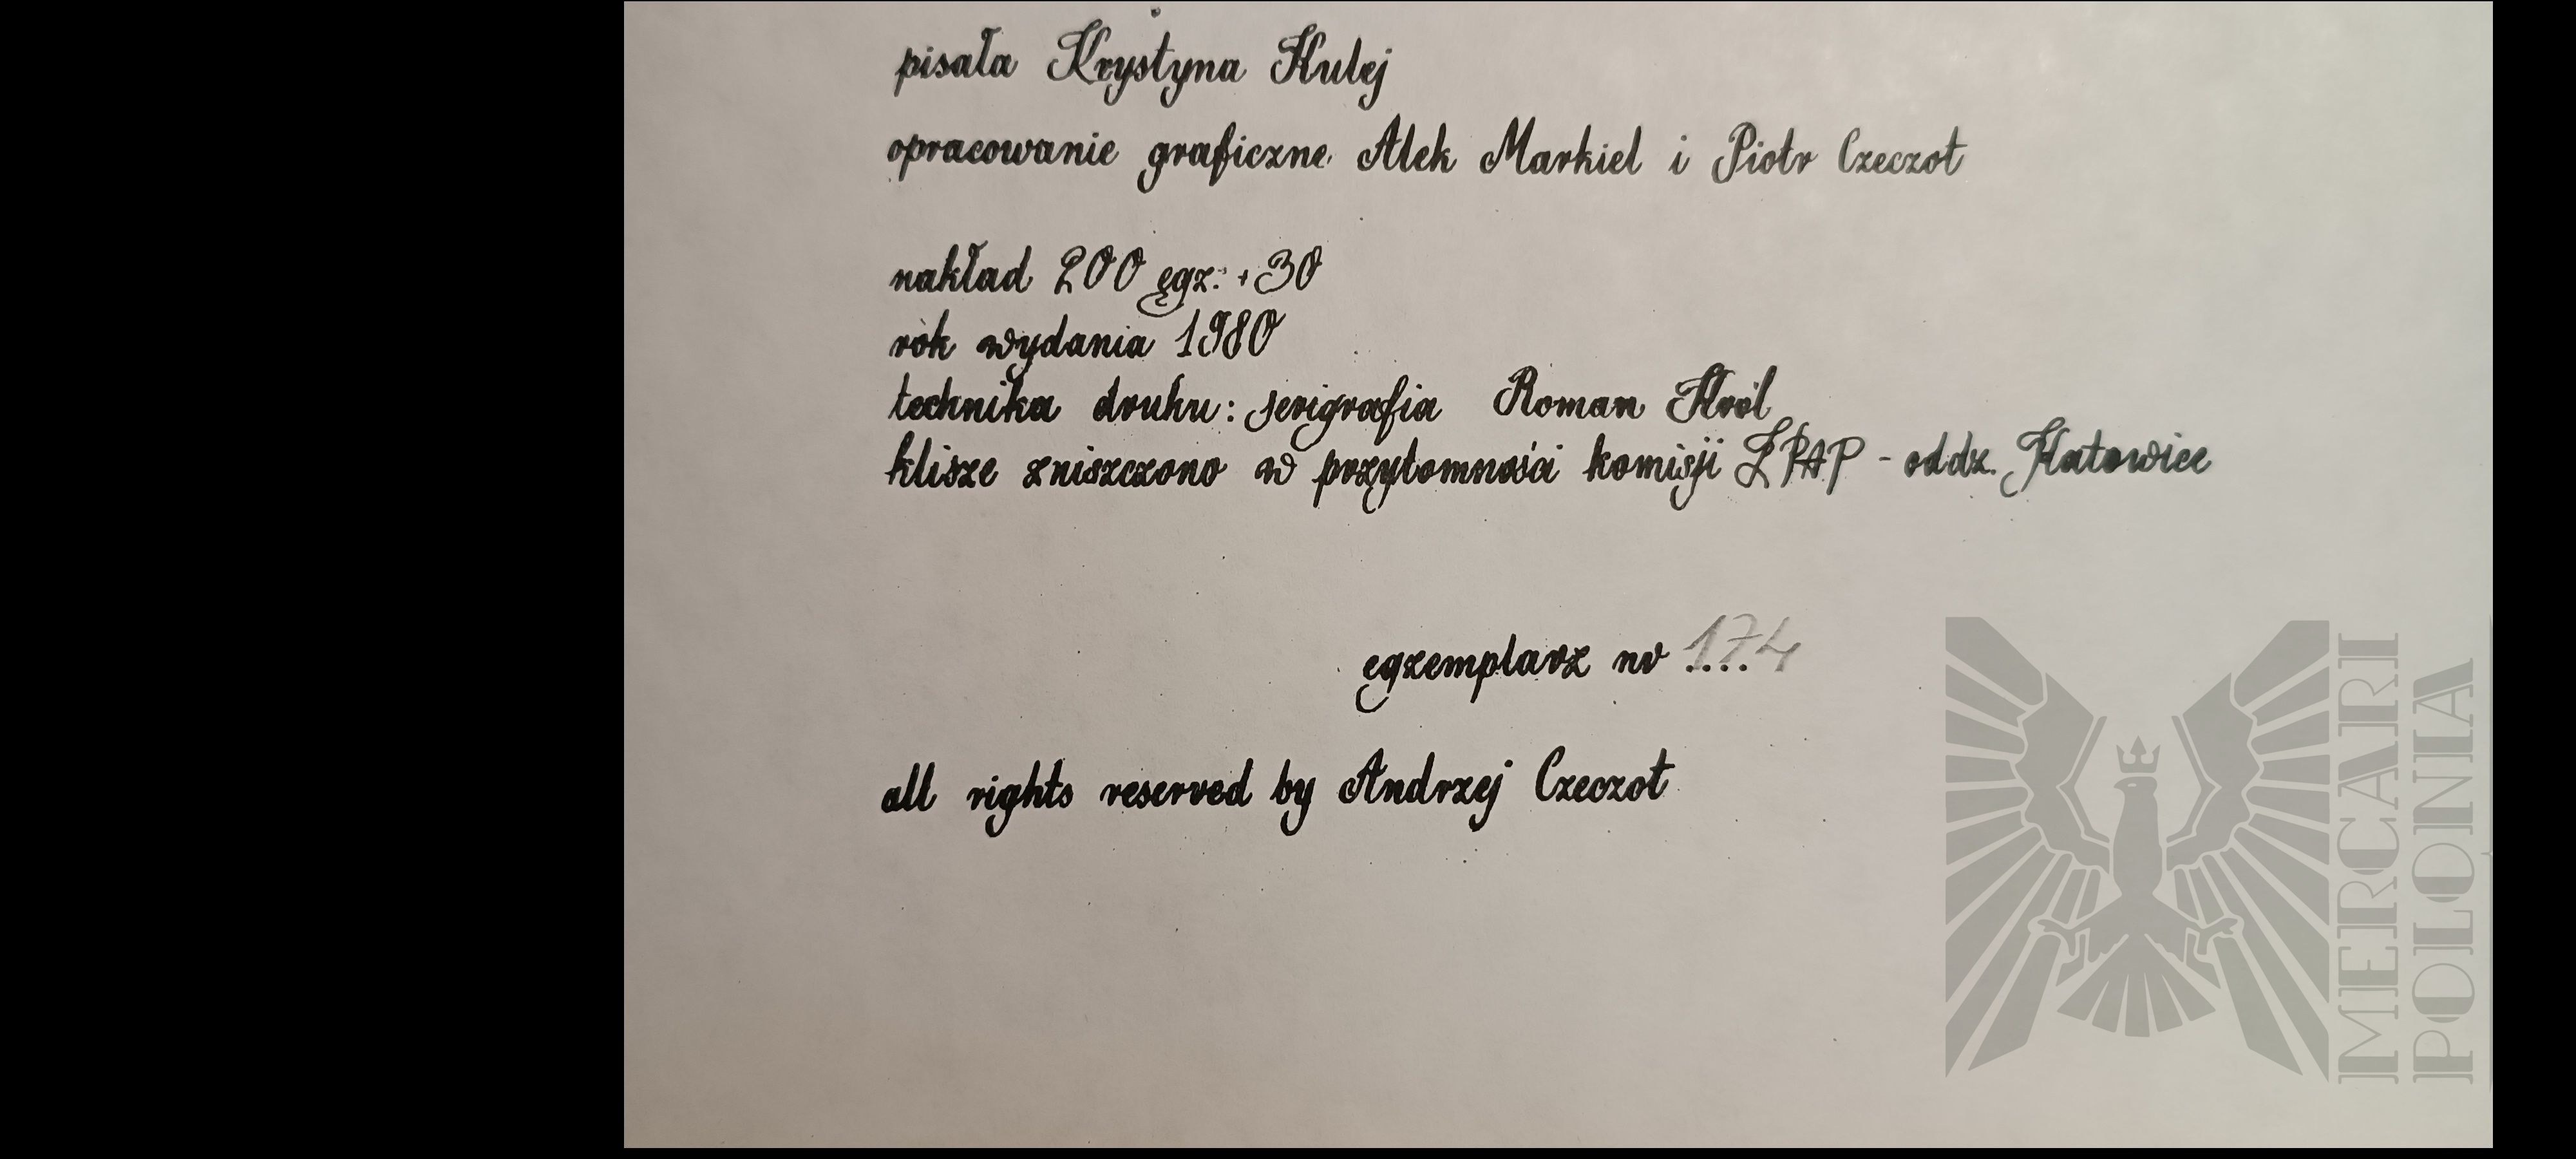 pisała Krystyna Kulej
opracowanie graficzne Alek Markiel i Piotr Czeczot
nakład 200 egz. + 30
rok wydania 1980
technika druku: serigrafia Roman Król
klisze zniszczono w przytomności komisji ZPAP - oddz. Katowice
egzemplarz nr 174
all rights reserved by Andrzej Czeczot
MERCARI
POLONIA